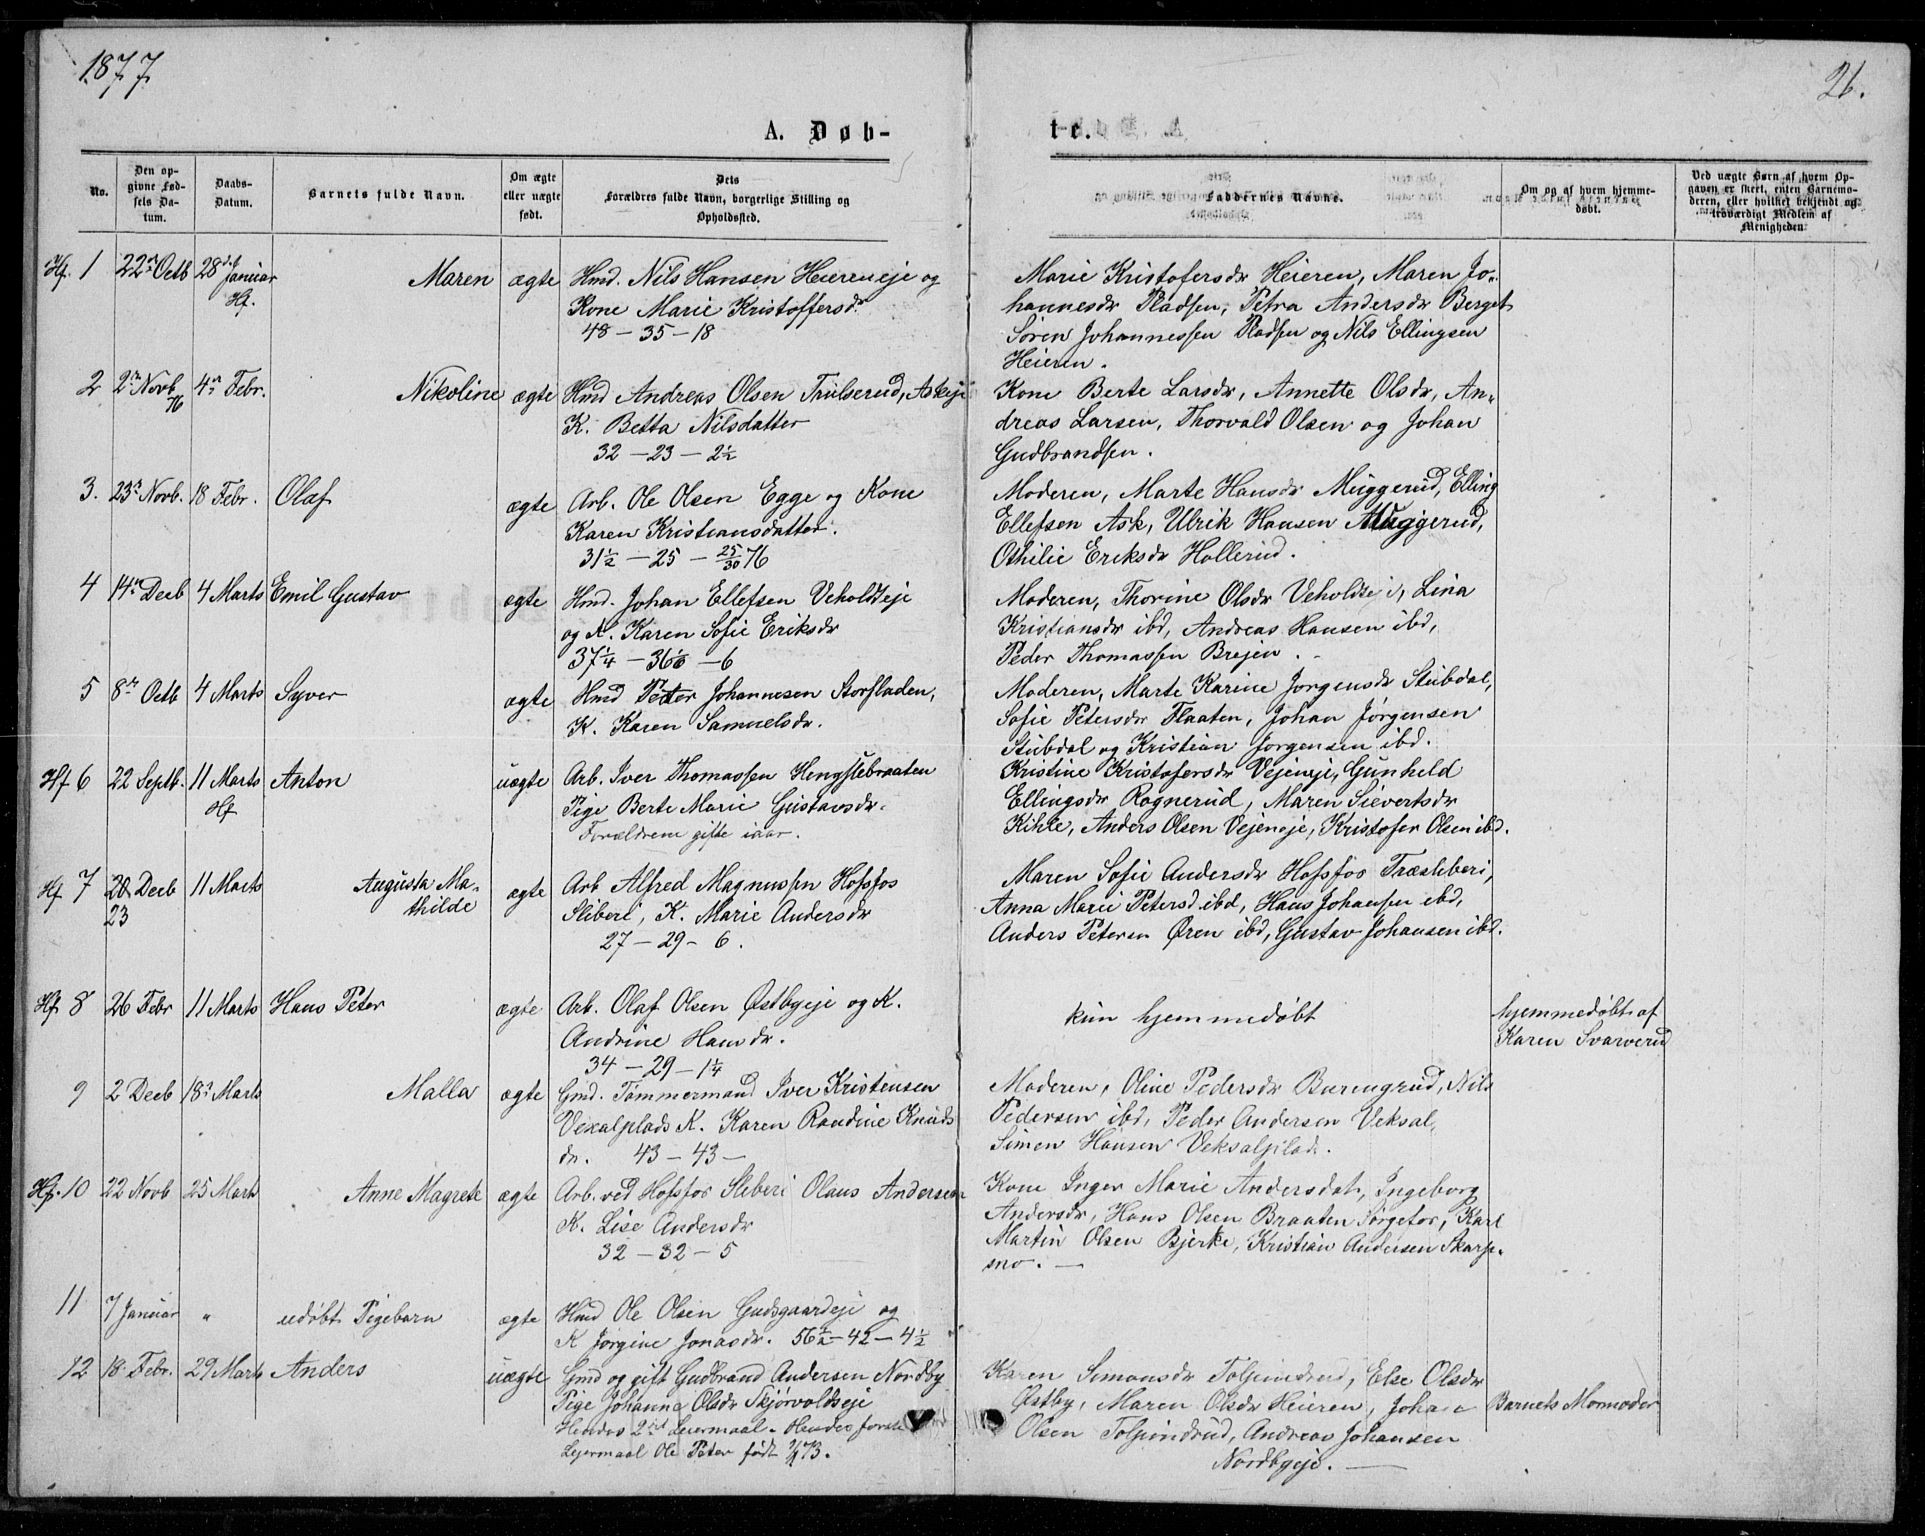 1877
26.
A. Døb-
te.
No.
Den opgivne Fødsels Datum.
Daabs-Datum.
Barnets fulde Navn.
Om ægte eller uægte født.
Dets Forældres fulde Navn, borgerlige Stilling og Opholdssted.
Faddernes Navne.
Om og af hvem hjemmedøbt.
Ved uægte Børn af hvem Opgaven er skeet, enten Barnemoderen, eller hvilket bekjendt og troværdigt Medlem af Menigheden.
Hf. 1 22n Octb 28d Januar Hf. Maren ægte Hmd. Nils Hansen Heiereneje og
Kone Marie Kristoffersdr
48 – 35 – 18
Marie Kristofersdr Heieren, Maren Jo-
hannesdr Pladsen, Petra Andersdr Berget
Sören Johannessen Pladsen og Nils Ellingsen
Heieren.
2 2n Novb 76 4n Febr. Nikoline ægte Hmd Andreas Olsen Trulserud, Askeje
K. Betta Nilsdatter
32 – 23 – 2½
Kone Berte Larsdr, Annette Olsdr, An-
dreas Larsen, Thorvald Olsen og Johan
Gudbrandsen.
3. 23n Novb. 18 Febr. Olaf ægte Arb. Ole Olsen Egge og Kone
Karen Kristiansdatter.
31½ – 25 – 25/30 76
Moderen, Marte Hansdr Muggerud, Elling
Ellefsen Ask, Ulrik Hansen Muggerud,
Othilie Eriksdr Hollerud.
4 14n Decb 4 Marts Emil Gustav ægte Hmd. Johan Ellefsen Veholdteje
og K. Karen Sofie Eriksdr
37¼ – 36 – 6
Moderen, Thorine Olsdr Veholdtej, Lina
Kristiansdr ibd, Andreas Hansen ibd,
Peder Thomassen Brejen.
5 8n Octb 4 Marts Syver ægte Hmd Peter Johannesen Storfladen,
K. Karen Samuelsdr.
Moderen, Marte Karine Jorgensdr Stubdal,
Sofie Petersdr Flaaten, Johan Jørgensen
Stubdal og Kristian Jorgensen ibd.
Hf 6 22 Septb. 11 Marts Hf Anton uægte Arb. Iver Thomassen Hengslebraaten
Pige Berte Marie Gustavsdr.
Forældrene gifte iaar.
Kristine Kristofersdr Vejeneje, Gunhild
Ellingsdr Rognerud, Maren Sievertsdr
Kihle, Anders Olsen Vejeneje, Kristofer Olsen ibd.
Hf 7 20 Decb 23 11 Marts Augusta Ma-
thilde ægte Arb Alfred Magnussen Hofsfos
Sliberi, K. Marie Andersdr
27 – 29 – 6.
Maren Sofie Andersdr Hofsfos Træsliberi,
Anna Marie Petersd ibd, Hans Johansen ibd,
Anders Petersen Øren ibd, Gustav Johansen ibd.
Hf 8 26 Febr 11 Marts Hans Peter ægte Arb. Olaf Olsen Østbyeje og K.
Andrine Hansdr.
34 – 29 – 1¼
kun hjemmedøbt
hjemmedøbt af
Karen Svarverud
9 2 Decb 18d Marts Malla ægte Gmd. Tömmermand Iver Kristensen
Vexalplads K. Karen Randine Knuds
dr. 43 – 43 –
Moderen, Oline Pedersdr Burengrud, Nils
Pedersen ibd, Peder Andersen Veksal,
Simen Hansen Veksalplads.
Hf. 10 22 Novb 25 Marts Anne Magrete ægte Arb. ved Hofsfos Sliberi Olaus Andersen
K. Lise Andersdr
32 – 32 – 5
Kone Inger Marie Andersdat, Ingeborg
Andersdr, Hans Olsen Braaten Sørgefos, Karl
Martin Olsen Bjerke, Kristian Andersen Skarp-
sno. —
11 7 Januar " udøbt Pigebarn ægte Hmd Ole Olsen Gudsgaardeje og
K Jørgine Jonasdr. 56½ – 42 – 4½
12 18 Febr. 29 Marts Anders uægte Gmd og gift Gudbrand Andersen Nordby
Pige Johanne Olsdr Skjørvoldseje
Hendes 2det Leiermaal. Hendes første
Lejermaal Ole Peter født 73.
Karen Simonsdr Tolpinrud, Else Olsdr
Østby, Maren Olsdr Heieren, Johan
Olsen Tolpindrud, Andreas Johansen
Nordbyeje. —
Barnets Mormoder